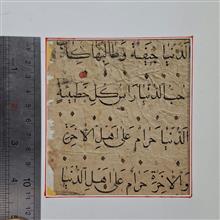 الدنيا جيفة وطالبها كلاب
حب الدنيا راس كل خطيئة
الدنيا حرام على اهل الاخرة
والاخرة حرام على اهل الدنيا